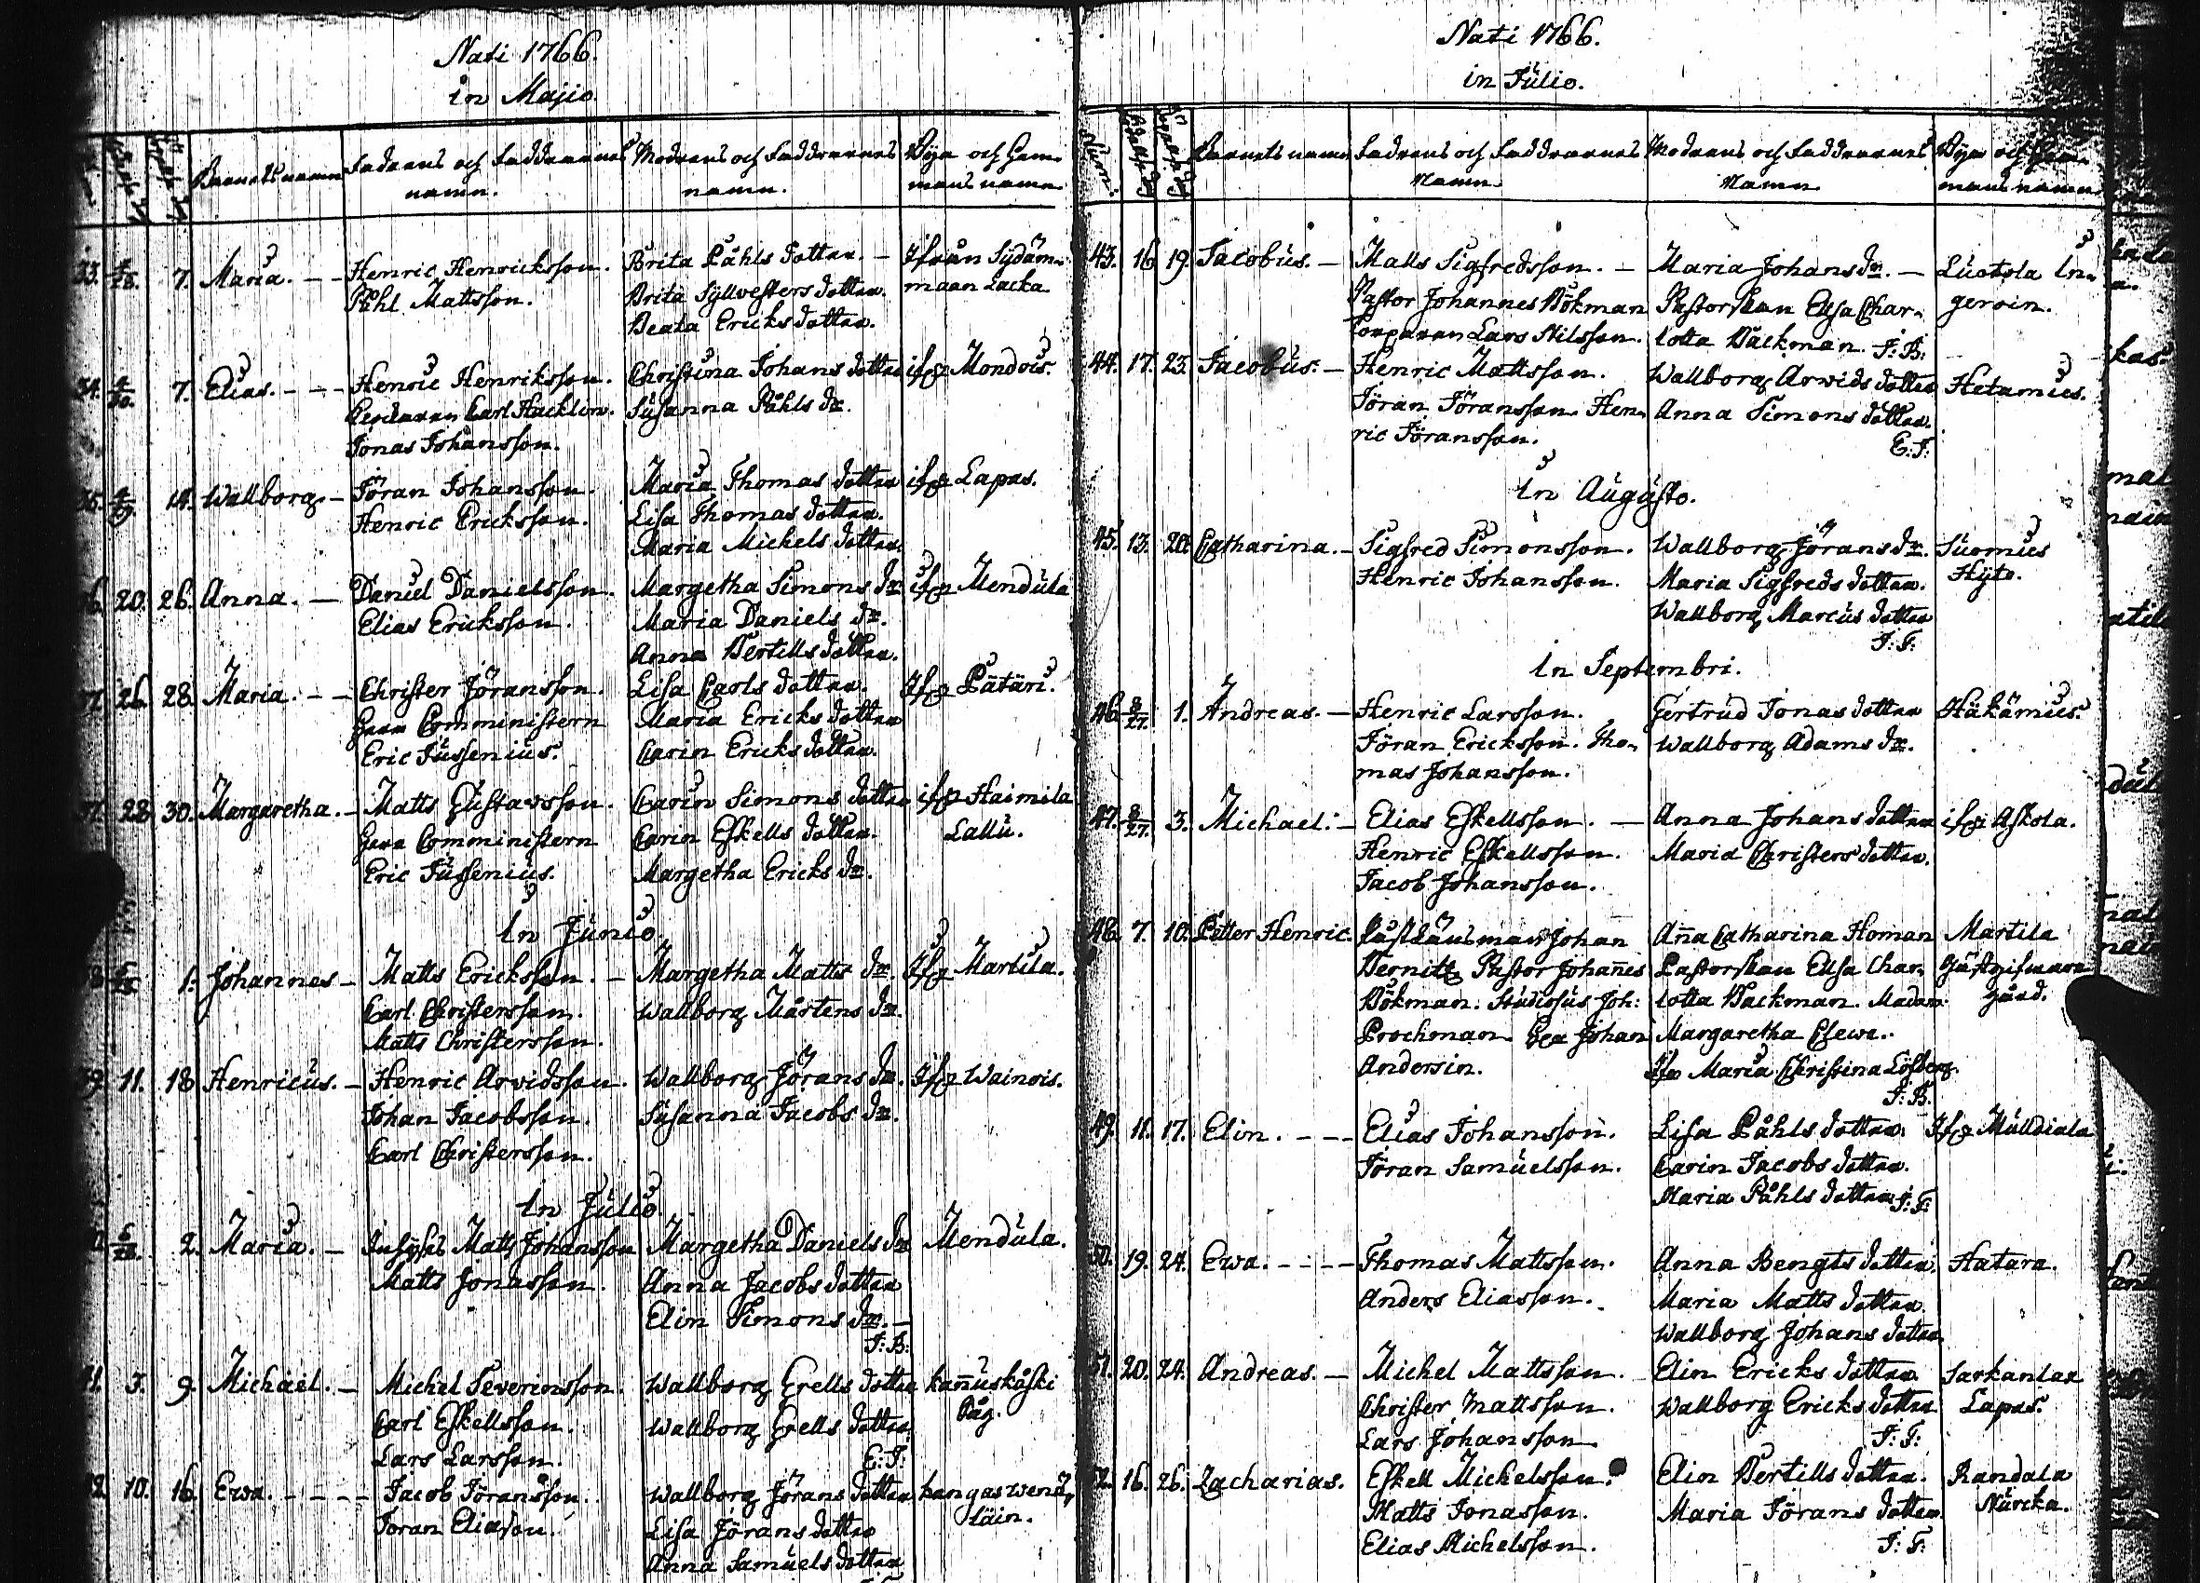 Nati 1766.
in Majio.
Barnets namn Fadrens och Faddrarnes Modrens och Faddrarnes Byn och Hem-
namn. namn. mans namn
7. Maria. — Henric Henricksson. Brita Påhls dotter. — Ifrån Sydäm-
Påhl Mattsson. Brita Syllvesters dotter. maan Lacka.
Beata Ericks dotter.
34. 7. Elias. — Henric Henriksson. Christina Johans dotter ifr. Mondois.
Carl Hacklin. Susanna Påhls dr.
Jonas Johansson.
35. 14. Wallborg. — Jöran Johansson. Maria Thomas dotter ifr. Lapas.
Henric Ericksson. Lisa Thomas dotter.
Maria Michels dotter.
20. 26. Anna. — Daniel Danielsson. Margetha Simons dr. ifr. Mendula
Elias Ericksson. Maria Daniels dr.
Anna Bertills dotter.
26. 28. Maria. — Christer Jöransson. Lisa Carls dotter. Ifr. Pätäri.
Herr Comministern Maria Ericks dotter
Eric Jussenius. Carin Ericks dotter.
28. 30. Margaretha. — Matts Gustavsson. Carin Simons dotter ifr. Haimila
Herr Comministern Carin Eskells dotter. Lallu.
Eric Jussenius. Margetha Ericks dr.
In Junio.
1. Johannes — Matts Ericksson. — Margetha Matts dr. Ifr. Martila.
Carl Christersson. Wallborg Mårtens dr.
Matts Christersson.
39. 11. 18. Henricus. — Henric Arvidsson. Wallborg Jörans dr. Ifr. Wainois.
Johan Jacobsson. Susanna Jacobs dr.
Carl Christersson.
In Julio.
2. Maria. — Matts Johansson Margetha Daniels dr Mendula.
Matts Jonasson. Anna Jacobs dotter
Elin Simons dr. —
J: B:
41. 3. 9. Michael. — Michel Severinsson. Wallborg Grells dotter kañuskåski
Carl Eskellsson. Wallborg Grells dotter.
Lars Larsson. E: J:
10. 16. Ewa. — Jacob Jöransson. Wallborg Jörans dotter. kangaswenä-
Joran Eliason. Lisa Jörans dotter läin.
Anna Samuels dotter
Nati 1766.
in Julio.
Num: Barnets namn Fadrens och Faddrarnes Modrens och Faddrarnes Byn och Hem-
Namn. Namn. mans namn
43. 16. 19. Jacobus. — Matts Sigfredsson. — Maria Johans dr. — Luotola In-
Pastor Johannes Bökman Pastorskan Elsa Char- geroin.
Torparen Lars Nilsson. lotta Backman. J: B:
44. 17. 23. Jacobus: — Henric Mattsson. Wallborg Arwids dotter Hetamies.
Jöran Jöransson. Hen- Anna Simons dotter.
ric Jöransson. E: J:
In Augusto.
45. 13. 20. Catharina. — Sigfred Simonsson. Wallborg Jörans dr. Suomies
Henric Johansson. Maria Sigfreds dotter. Hyte.
Wallborg Marcus dotter
J: J:
In Septembri.
46. 8/27. 1. Andreas. — Henric Larsson. Gertrud Jonas dotter Häkämies.
Jöran Ericksson. Tho- Wallborg Adams dr.
mas Johansson.
47. 8/27. 3. Michael. — Elias Eskellsson. — Anna Johans dotter ifr. Askola.
Henric Eskellsson. Maria Christers dotter.
Jacob Johansson.
48. 7. 10. Petter Henric. Johan Aña Catharina Homan Martila
Pastor Johañes Pastorskan Elsa Char- Gästgifware
Bökman. Studiosus Joh: lotta Backman. Madam: gård.
Prochman. Johan Margaretha Clewe.
Andersin. Maria Christina
J: B:
49. 11. 17. Elin. — Elias Johansson. Lisa Påhls dotter. Ifr. Mulldiala
Jöran Samuelsson. Carin Jacobs dotter.
Maria Påhls dotter. J: J:
50. 19. 24. Ewa. — Thomas Mattsson. Anna Bengts dotter. Hatara.
Anders Eliasson. Maria Matts dotter.
Wallborg Johans dotter.
51. 20. 24. Andreas. — Michel Mattsson. Elin Ericks dotter Sarkanlax
Christer Mattsson. Wallborg Ericks dotter. Lapas.
Lars Johansson J: J:
52. 16. 26. Zacharias. Eskell Mickelsson. Elin Bertills dotter. Randala
Matts Jonasson. Maria Jörans dotter. Nurcka.
Elias Michelsson. J: J: